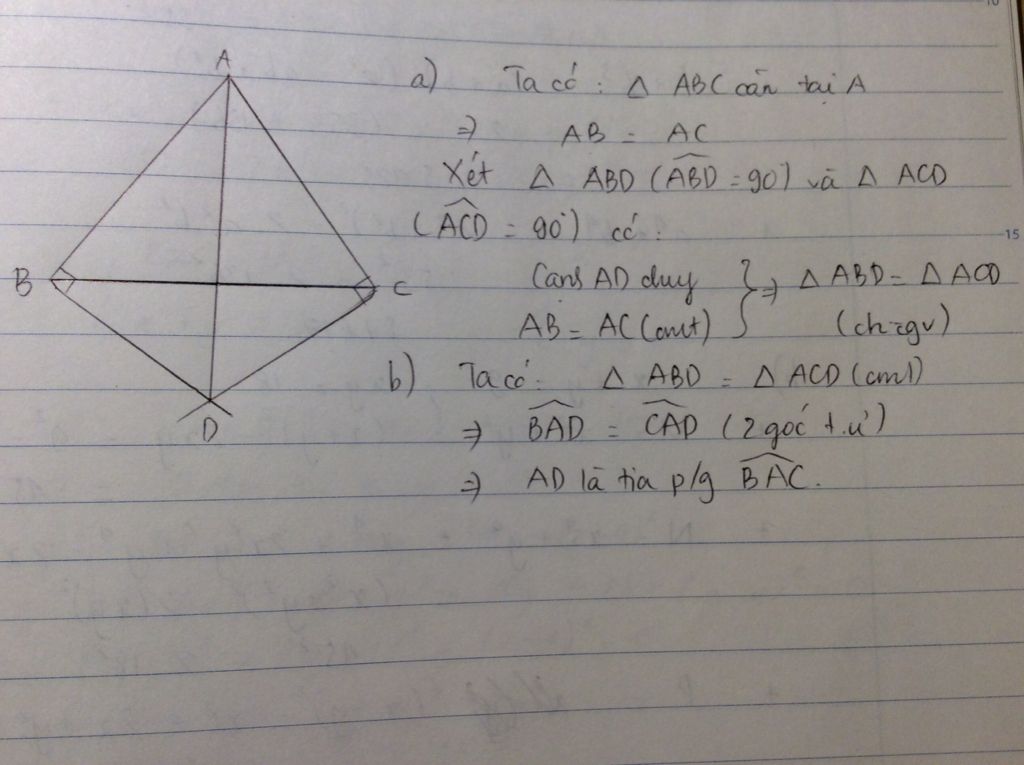 A
B
C
D
a) Ta có : Δ ABC cân tại A
⇒ AB = AC
Xét Δ ABD (\widehat{ABD} = 90°) và Δ ACD
(\widehat{ACD} = 90°) có :
Cạnh AD chung } ⇒ Δ ABD = Δ ACD
AB = AC (cmt) (ch-cgv)
b) Ta có : Δ ABD = Δ ACD (cmt)
⇒ \widehat{BAD} = \widehat{CAD} (2 góc t.ứ)
⇒ AD là tia p/g \widehat{BAC}.
15